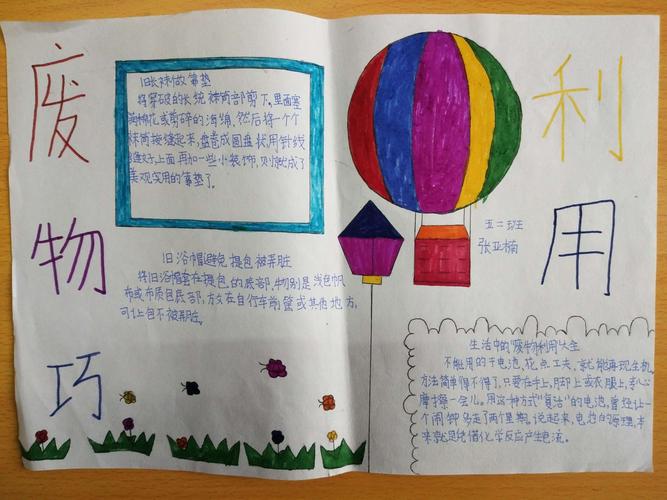 废
物
巧
利
用
旧长袜做靠垫
将穿破的长统袜筒部剪下,里面塞
满棉花或剪碎的海绵,然后将一个个
袜筒接缝起来,盘卷成圆盘状用针线
缝好,上面再加一些小装饰,则就成了
美观实用的靠垫了。
五二班
张亚楠
旧浴帽避免提包被弄脏
将旧浴帽套在提包的底部,物别是浅色帆
布或布质包底部,放在自行车前筐或其他地方,
可让包不被弄脏。
生活中的废物利用大全
不能用的干电池,花点工夫,就能再现生机,
方法简单得不得了,只要在手上,脚上或衣服上,专心
摩擦一会儿。用这种方式"复活"的电池,曾经让一
个闹钟多走了两个星期。说起来,电池的原理,本
来就是凭借化学反应产生电流。